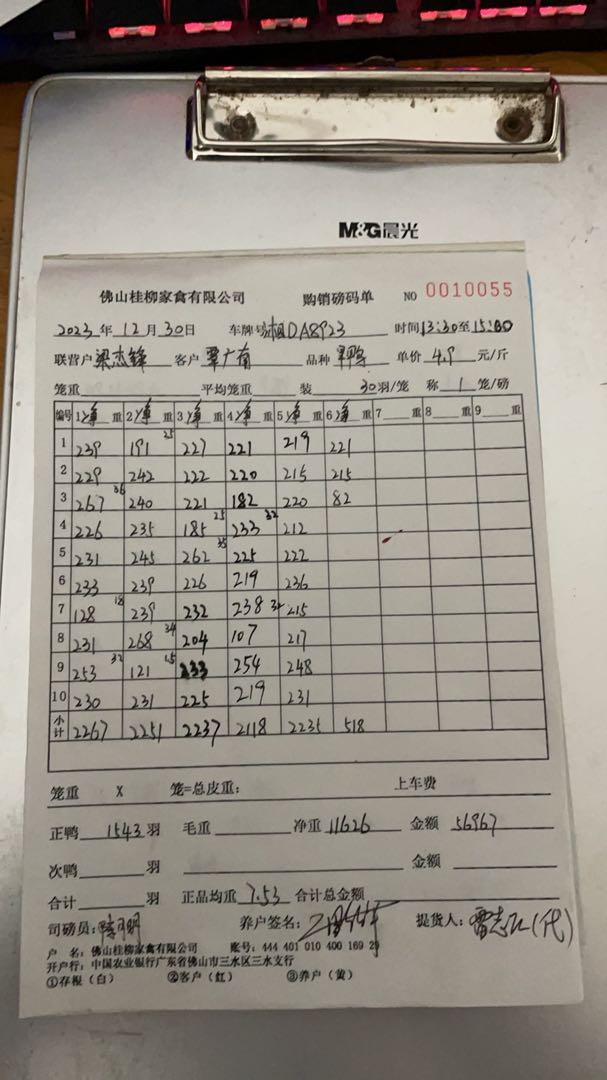 M&G晨光
佛山桂柳家禽有限公司 购销磅码单 NO 0010055
2023年12月30日 车牌号湘DA8923 时间13:30至15:00
联营户梁杰锋 客户覃广南 品种 单价4.9元/斤
笼重 平均笼重 装30羽/笼 称1笼/磅
编号 1净重 2净重 3净重 4净重 5净重 6净重 7重 8重 9重
1 239 191 25 227 221 219 221
2 229 242 222 220 215 215
3 267 36 240 221 182 220 82
4 226 235 185 25 233 32 212
5 231 245 262 35 225 222
6 233 239 226 219 236
7 128 18 239 232 238 32 215
8 231 268 34 204 107 217
9 253 32 121 15 233 254 248
10 230 231 225 219 231
小计 2267 2251 2237 2118 2235 518
笼重 X 笼=总皮重: 上车费
正鸭1543羽 毛重 净重11626 金额56967
次鸭 羽 金额
合计 羽 正品均重7.53 合计总金额
司磅员: 养户签名: 提货人: (代)
户 名: 佛山桂柳家禽有限公司 账号: 444 401 010 400 169 29
开户行: 中国农业银行广东省佛山市三水区三水支行
①存根(白) ②客户(红) ③养户(黄)